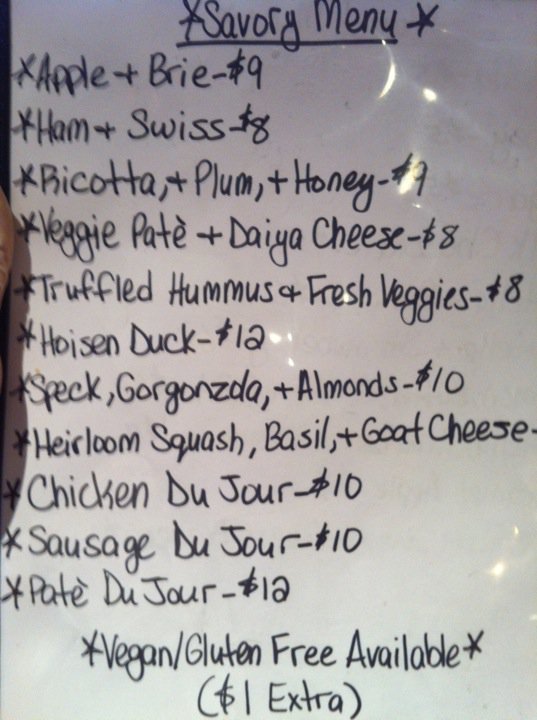 *Savory Menu*
*Apple + Brie-$9
*Ham + Swiss-$8
*Ricotta, + Plum, + Honey-$9
*Veggie Patè + Daiya Cheese-$8
*Truffled Hummus + Fresh Veggies-$8
*Hoisen Duck-$12
*Speck, Gorgonzola, + Almonds-$10
*Heirloom Squash, Basil, + Goat Cheese-
*Chicken Du Jour-$10
*Sausage Du Jour-$10
*Patè Du Jour-$12
*Vegan/Gluten Free Available*
($1 Extra)